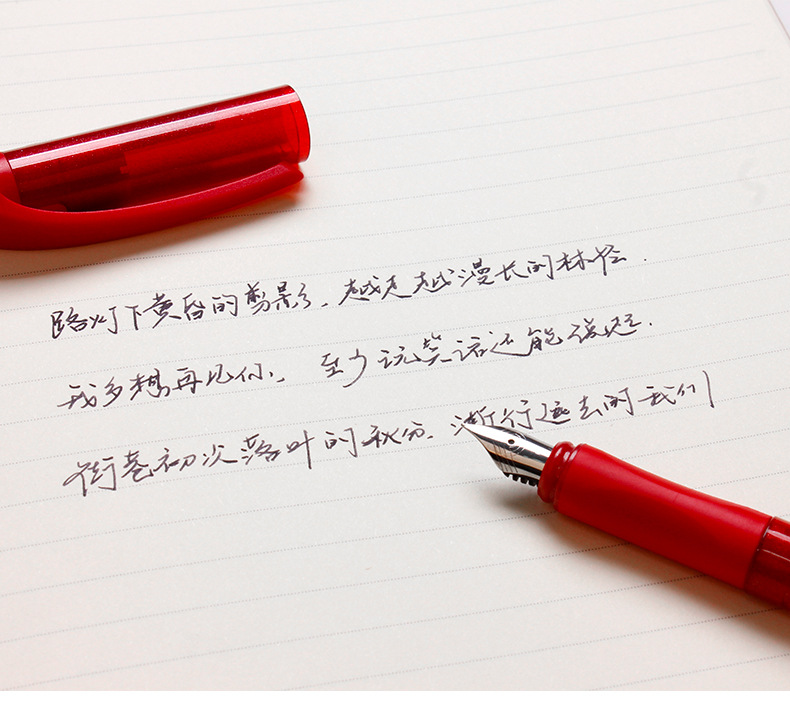 路灯下黄昏的剪影、越走越漫长的林径.
我多想再见你、至少玩笑话还能说起.
街巷初次落叶的秋分.渐行远去的我们